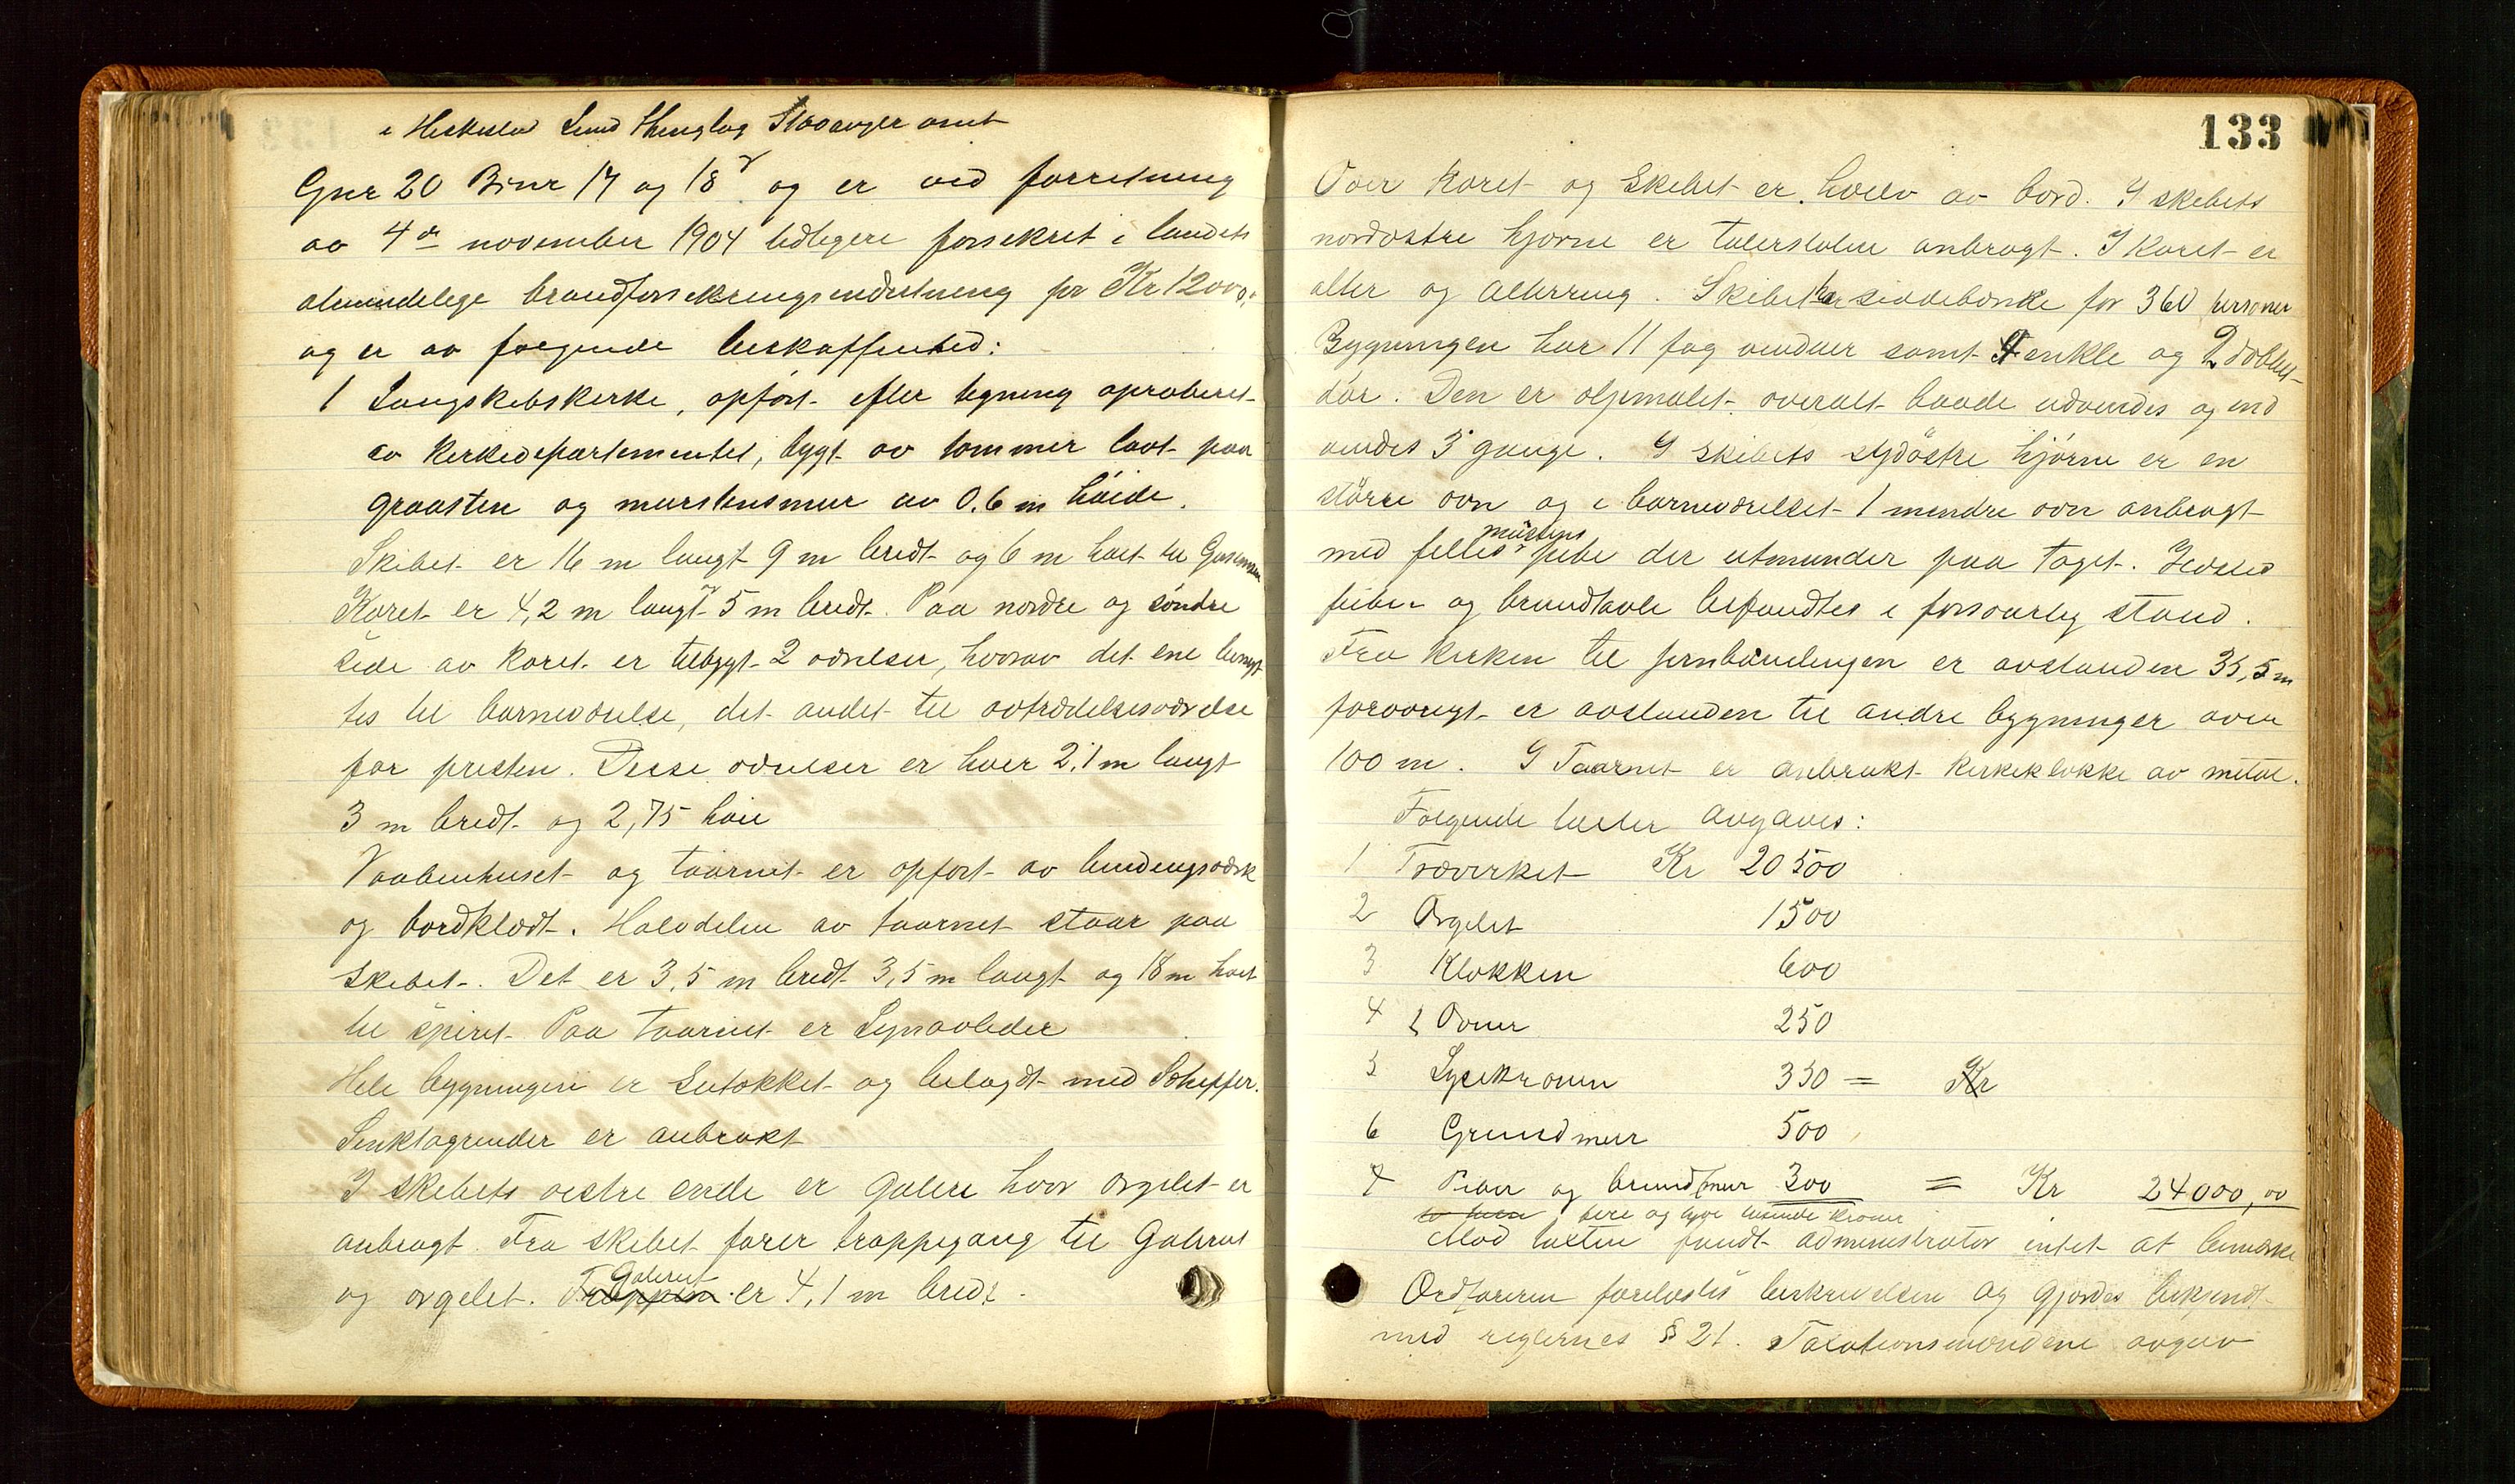 i Heskestad Lund Thinglag Stavanger amt
Gnr 20 Bnr 17 og 18 og er ved forretning
av 4de november 1904 tidligere forsikret i landets
almindelige brandforsikringsindretning for Kr 12000,-
og er av følgende beskaffenhed:
1 Langskibskirke, opført efter tegning aproberet
av kirkedepartementet, bygt av tømmer lavt paa
graasten og murstensmur av 0.6 m høide.
Skibet er 16 m langt 9 m bredt og 6 m høit til Gesimsen
Koret er 4,2 m langt og 5 m bredt. Paa nordre og søndre
side av koret er tilbygt 2 værelser, hvorav det ene benyt
tes til barneværelse, det andet til avtrædelsesværelse
for presten. Disse værelser er hver 2,1 m langt
3 m bredt og 2,75 høie
Vaabenhuset og taarnet er opført av bindingsværk
og bordklædt. Halvdelen av taarnet staar paa
skibet. Det er 3,5 m bredt 3,5 m langt og 18 m høit
til spiret. Paa taarnet er Lynavleder
Hele bygningen er sutakket og belagdt med Skiffer.
Sinktagrender er anbrakt
I skibets vestre ende er Galeri hvor orgelet er
anbragt. Fra skibet fører trappegang til Galeriet
og orgelet. Trappen Galeriet er 4,1 m bredt.
133
Over koret og skibet er hvælv av bord. I skibets
nordøstre hjørne er talerstolen anbragt. I koret er
alter og alterring. Skibet har siddebænke for 360 personer
Bygningen har 11 fag vinduer samt 4 enkle og 2 dobbelt
dør. Den er oljemalet overalt baade udvendes og ind
vendes 3 gange. I skibets sydøstre hjørne er en
større ovn og i barneværelset 1 mindre ovn anbragt
med felles murstens pibe der utmunder paa taget. Ildsted
piber og brandtavle befandtes i forsvarlig stand.
Fra kirken til jernbanelinjen er avstanden 35,5 m
forøvrigt er avstanden til andre bygninger over
100 m. I Taarnet er anbrakt kirkeklokke av metal.
Følgende takster avgaves:
1 Træverket Kr 20 500
2 Orgelet 1500
3 Klokken 600
4 2 Ovner 250
5 Lysekronen 350 = Kr
6 Grundmur 500
7 Piber og brandmur 300 = Kr 24000,00
fire og tyve tusinde kroner
Mod taxten fandt administrator intet at bemærke
Ordføreren forelæstes beskrivelsen og gjordes bekjendt
med reglernes § 21. Taxationsmændene avgav